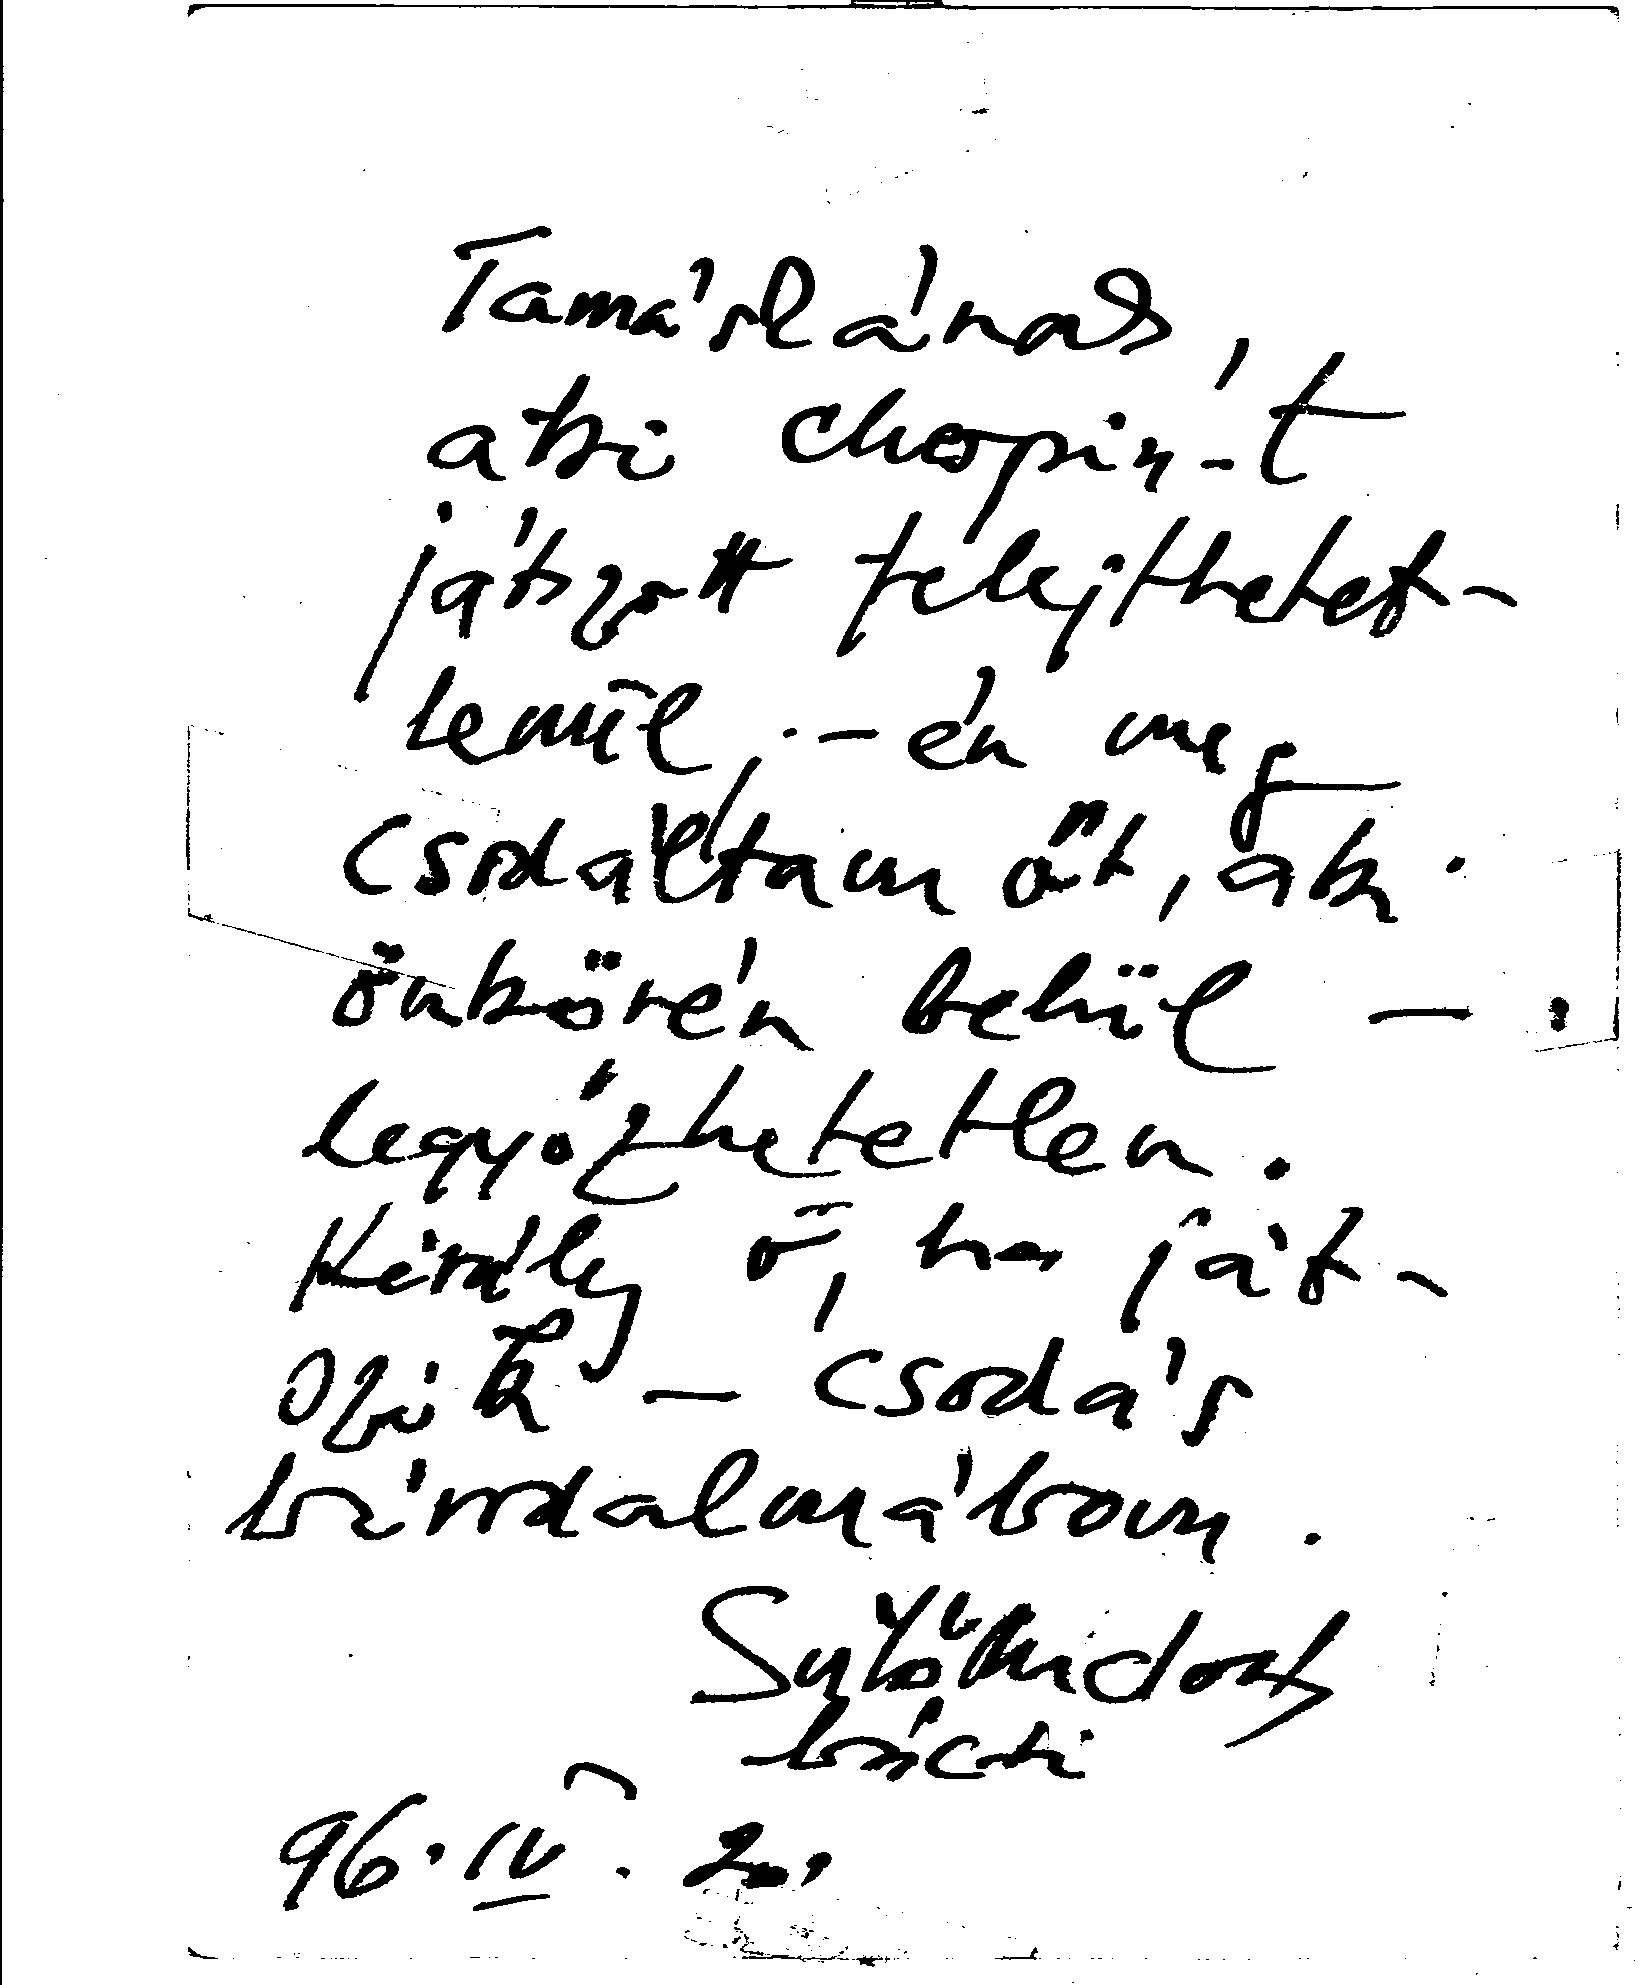 Tamáskának,
aki Chopin-t
játszott felejthetet-
lenül, - én meg
csodáltam őt, aki
önkörén belül —
legyőzhetetlen.
Király ő, ha ját-
szik — csodás
birodalmában.
Sütő András
bácsi
96. IV. 20.